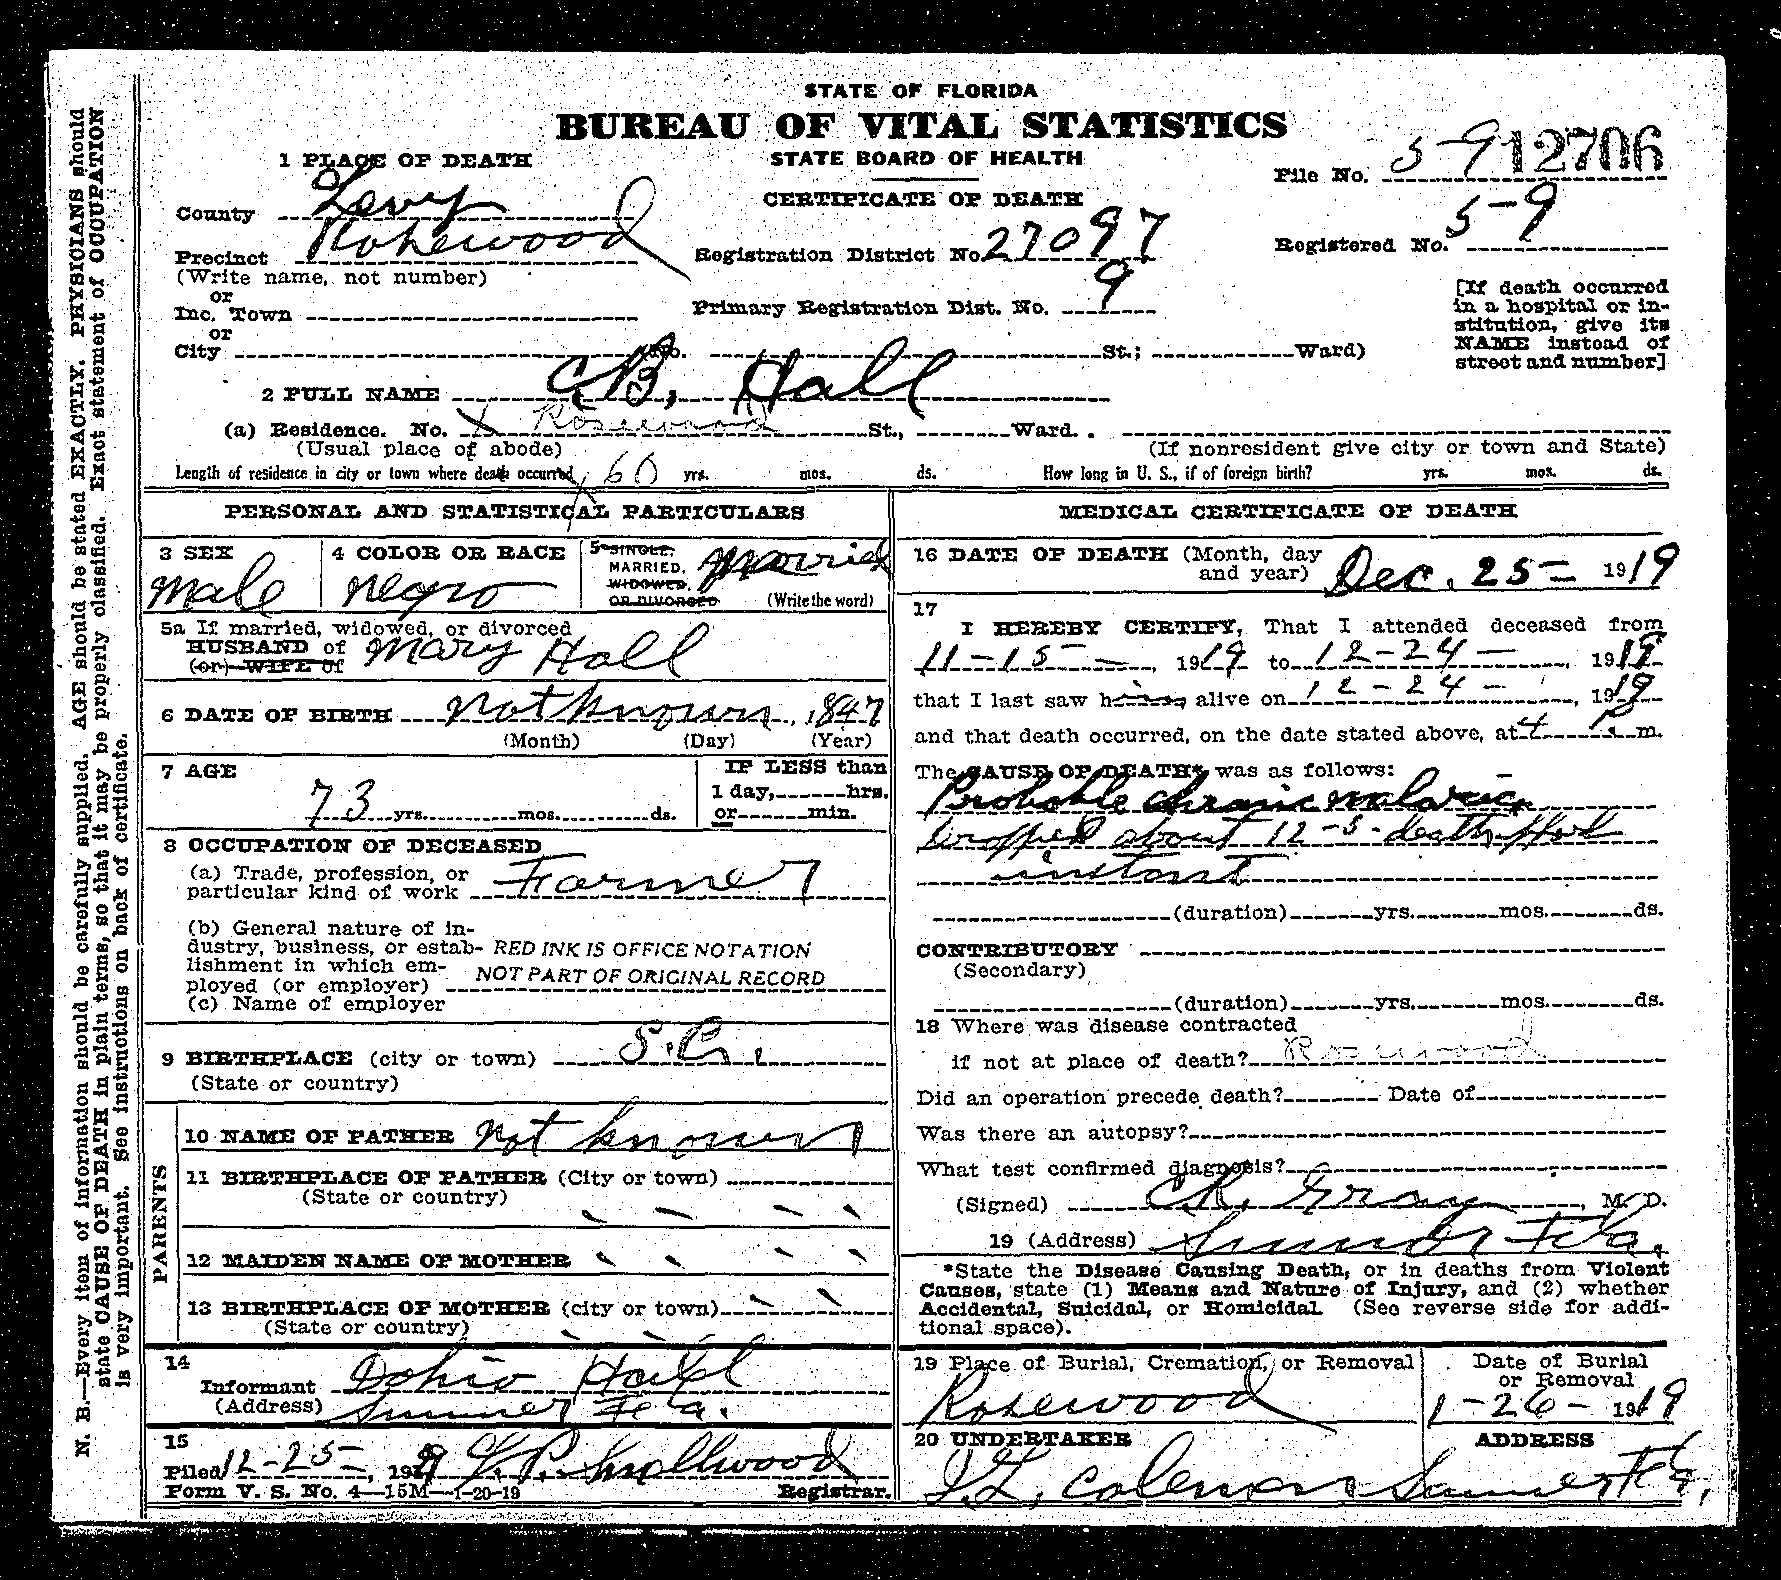 STATE OF FLORIDA
BUREAU OF VITAL STATISTICS
STATE BOARD OF HEALTH
CERTIFICATE OF DEATH
File No. 5-9 12706
Registered No. 5-9
1 PLACE OF DEATH
County Levy
Precinct Rosewood
(Write name, not number)
or
Inc. Town
or
City No. St.; Ward)
Registration District No. 27097
Primary Registration Dist. No. 9
[If death occurred
in a hospital or in-
stitution, give its
NAME instead of
street and number]
2 FULL NAME C.B. Hall
(a) Residence. No. X Rosewood St., Ward.
(Usual place of abode) (If nonresident give city or town and State)
Length of residence in city or town where death occurred X 60 yrs. mos. ds. How long in U. S., if of foreign birth? yrs. mos. ds.
PERSONAL AND STATISTICAL PARTICULARS
3 SEX
male
4 COLOR OR RACE
negro
5 SINGLE,
MARRIED,
WIDOWED,
OR DIVORCED
Married
(Write the word)
5a If married, widowed, or divorced
HUSBAND of
(or) WIFE of
Mary Hall
6 DATE OF BIRTH not known, 1847
(Month) (Day) (Year)
7 AGE
73 yrs. mos. ds.
IF LESS than
1 day, hrs.
or min.
8 OCCUPATION OF DECEASED
(a) Trade, profession, or
particular kind of work Farmer
(b) General nature of in-
dustry, business, or estab-
lishment in which em-
ployed (or employer)
RED INK IS OFFICE NOTATION
NOT PART OF ORIGINAL RECORD
(c) Name of employer
9 BIRTHPLACE (city or town) S.C.
(State or country)
PARENTS
10 NAME OF FATHER not known
11 BIRTHPLACE OF FATHER (City or town)
(State or country)
12 MAIDEN NAME OF MOTHER
13 BIRTHPLACE OF MOTHER (city or town)
(State or country)
14
Informant Hall
(Address) Sumner Fla.
15
Filed 12-25-, 1919
Registrar.
Form V. S. No. 4—15M—1-20-19
MEDICAL CERTIFICATE OF DEATH
16 DATE OF DEATH (Month, day
and year) Dec. 25- 1919
17
I HEREBY CERTIFY, That I attended deceased from
11-15-, 1919 to 12-24-, 1919
that I last saw him alive on 12-24-, 1919
and that death occurred, on the date stated above, at 4 P. m.
The CAUSE OF DEATH* was as follows:
Probable chronic malaria
about 12-5- death
instant
(duration) yrs. mos. ds.
CONTRIBUTORY
(Secondary)
(duration) yrs. mos. ds.
18 Where was disease contracted
if not at place of death? Rosewood
Did an operation precede death? Date of
Was there an autopsy?
What test confirmed diagnosis?
(Signed) Gray, M. D.
19 (Address) Sumner Fla.
*State the Disease Causing Death, or in deaths from Violent
Causes, state (1) Means and Nature of Injury, and (2) whether
Accidental, Suicidal, or Homicidal. (See reverse side for addi-
tional space).
19 Place of Burial, Cremation, or Removal
Rosewood
Date of Burial
or Removal
1-26- 1919
20 UNDERTAKER
Coleman
ADDRESS
Sumner Fla,
N. B.—Every item of information should be carefully supplied. AGE should be stated EXACTLY. PHYSICIANS should
state CAUSE OF DEATH in plain terms, so that it may be properly classified. Exact statement of OCCUPATION
is very important. See instructions on back of certificate.